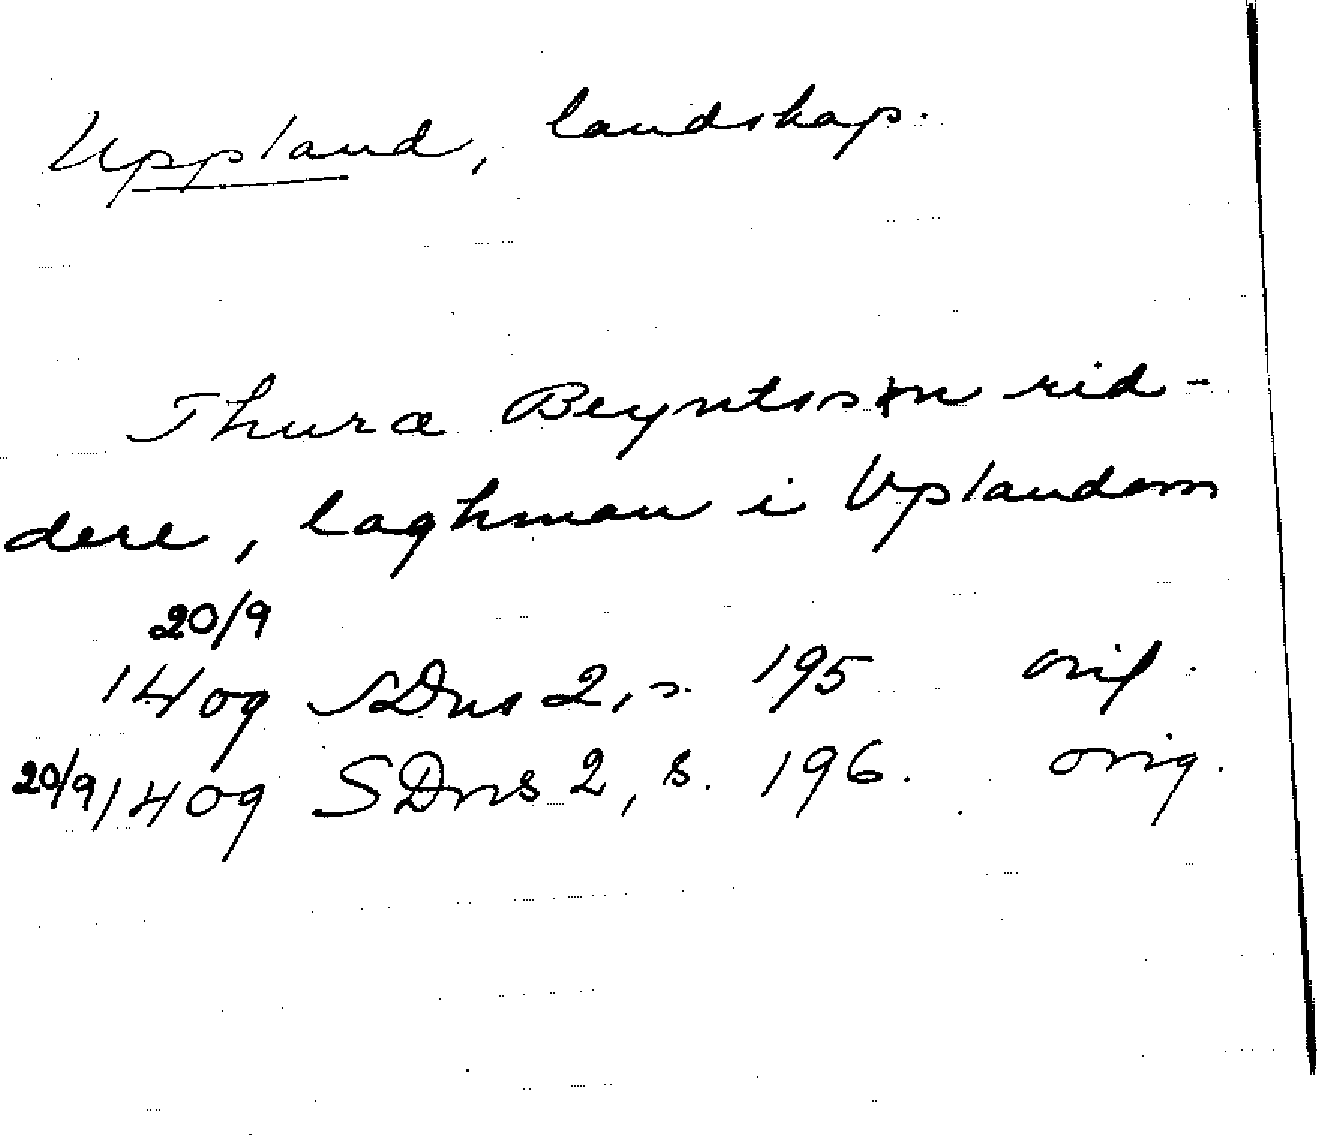 Uppland, landskap.
Thuræ Beyntsson rid-
dere, laghman i Vplandom
20/9
1409 SDns 2, s. 195 orig.
20/9 1409 SDns 2, s. 196. orig.